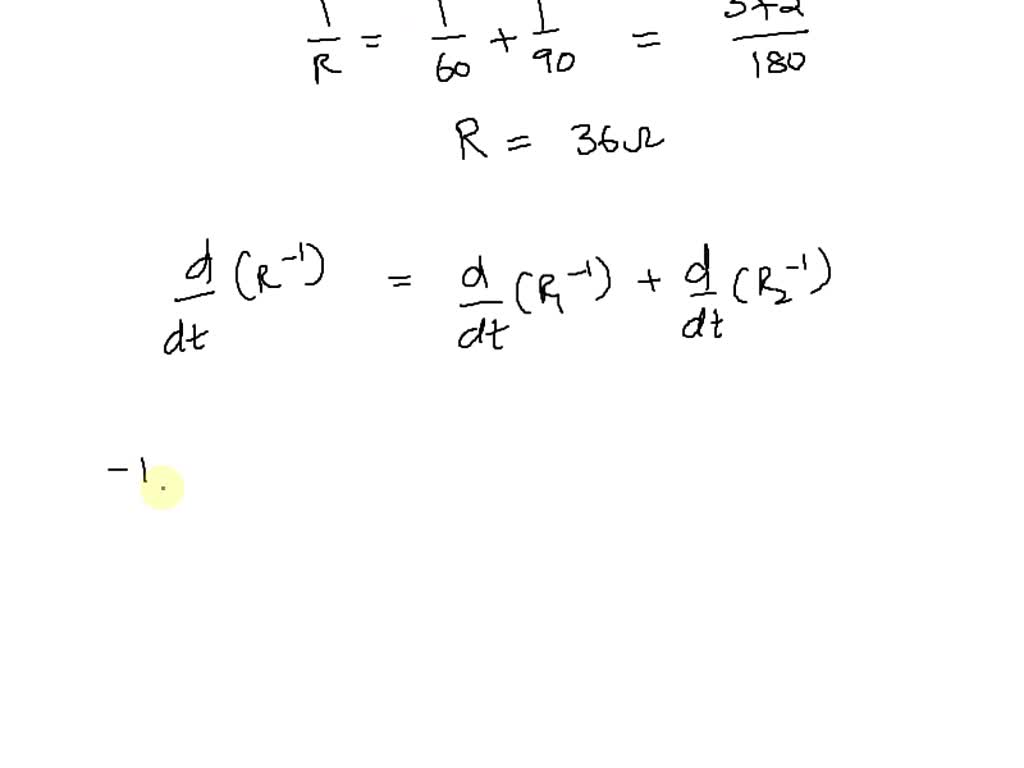 1/R = 1/60 + 1/90 = 3+2/180
R = 36Ω
d/dt (R⁻¹) = d/dt (R₁⁻¹) + d/dt (R₂⁻¹)
-1.